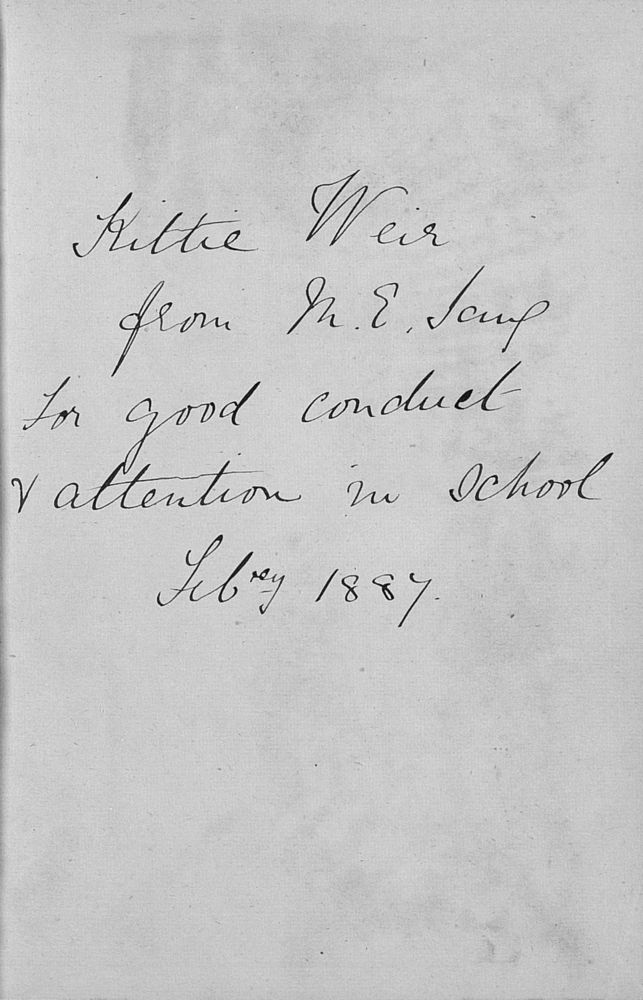 Kittie Weir
from M. E. Sang
For good conduct
& attention in school
Feb^ry 1887.